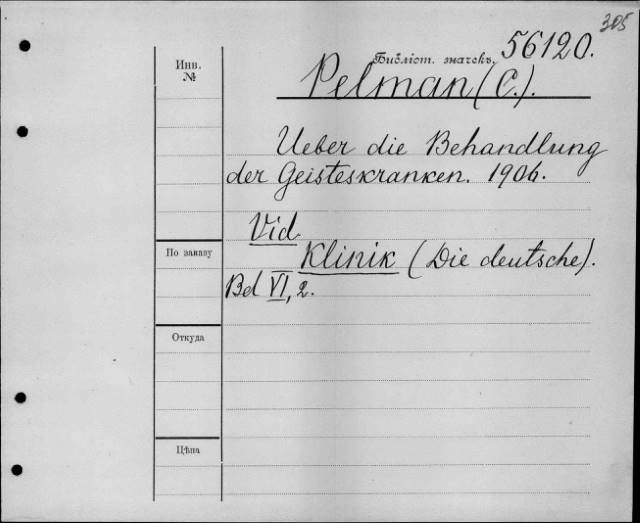 305
Библіот. значекъ. 56120.
Инв.
№
Pelman (C.).
Ueber die Behandlung
der Geisteskranken. 1906.
Vid
По заказу
Klinik (Die deutsche).
Bd VI, 2.
Откуда
Цѣна